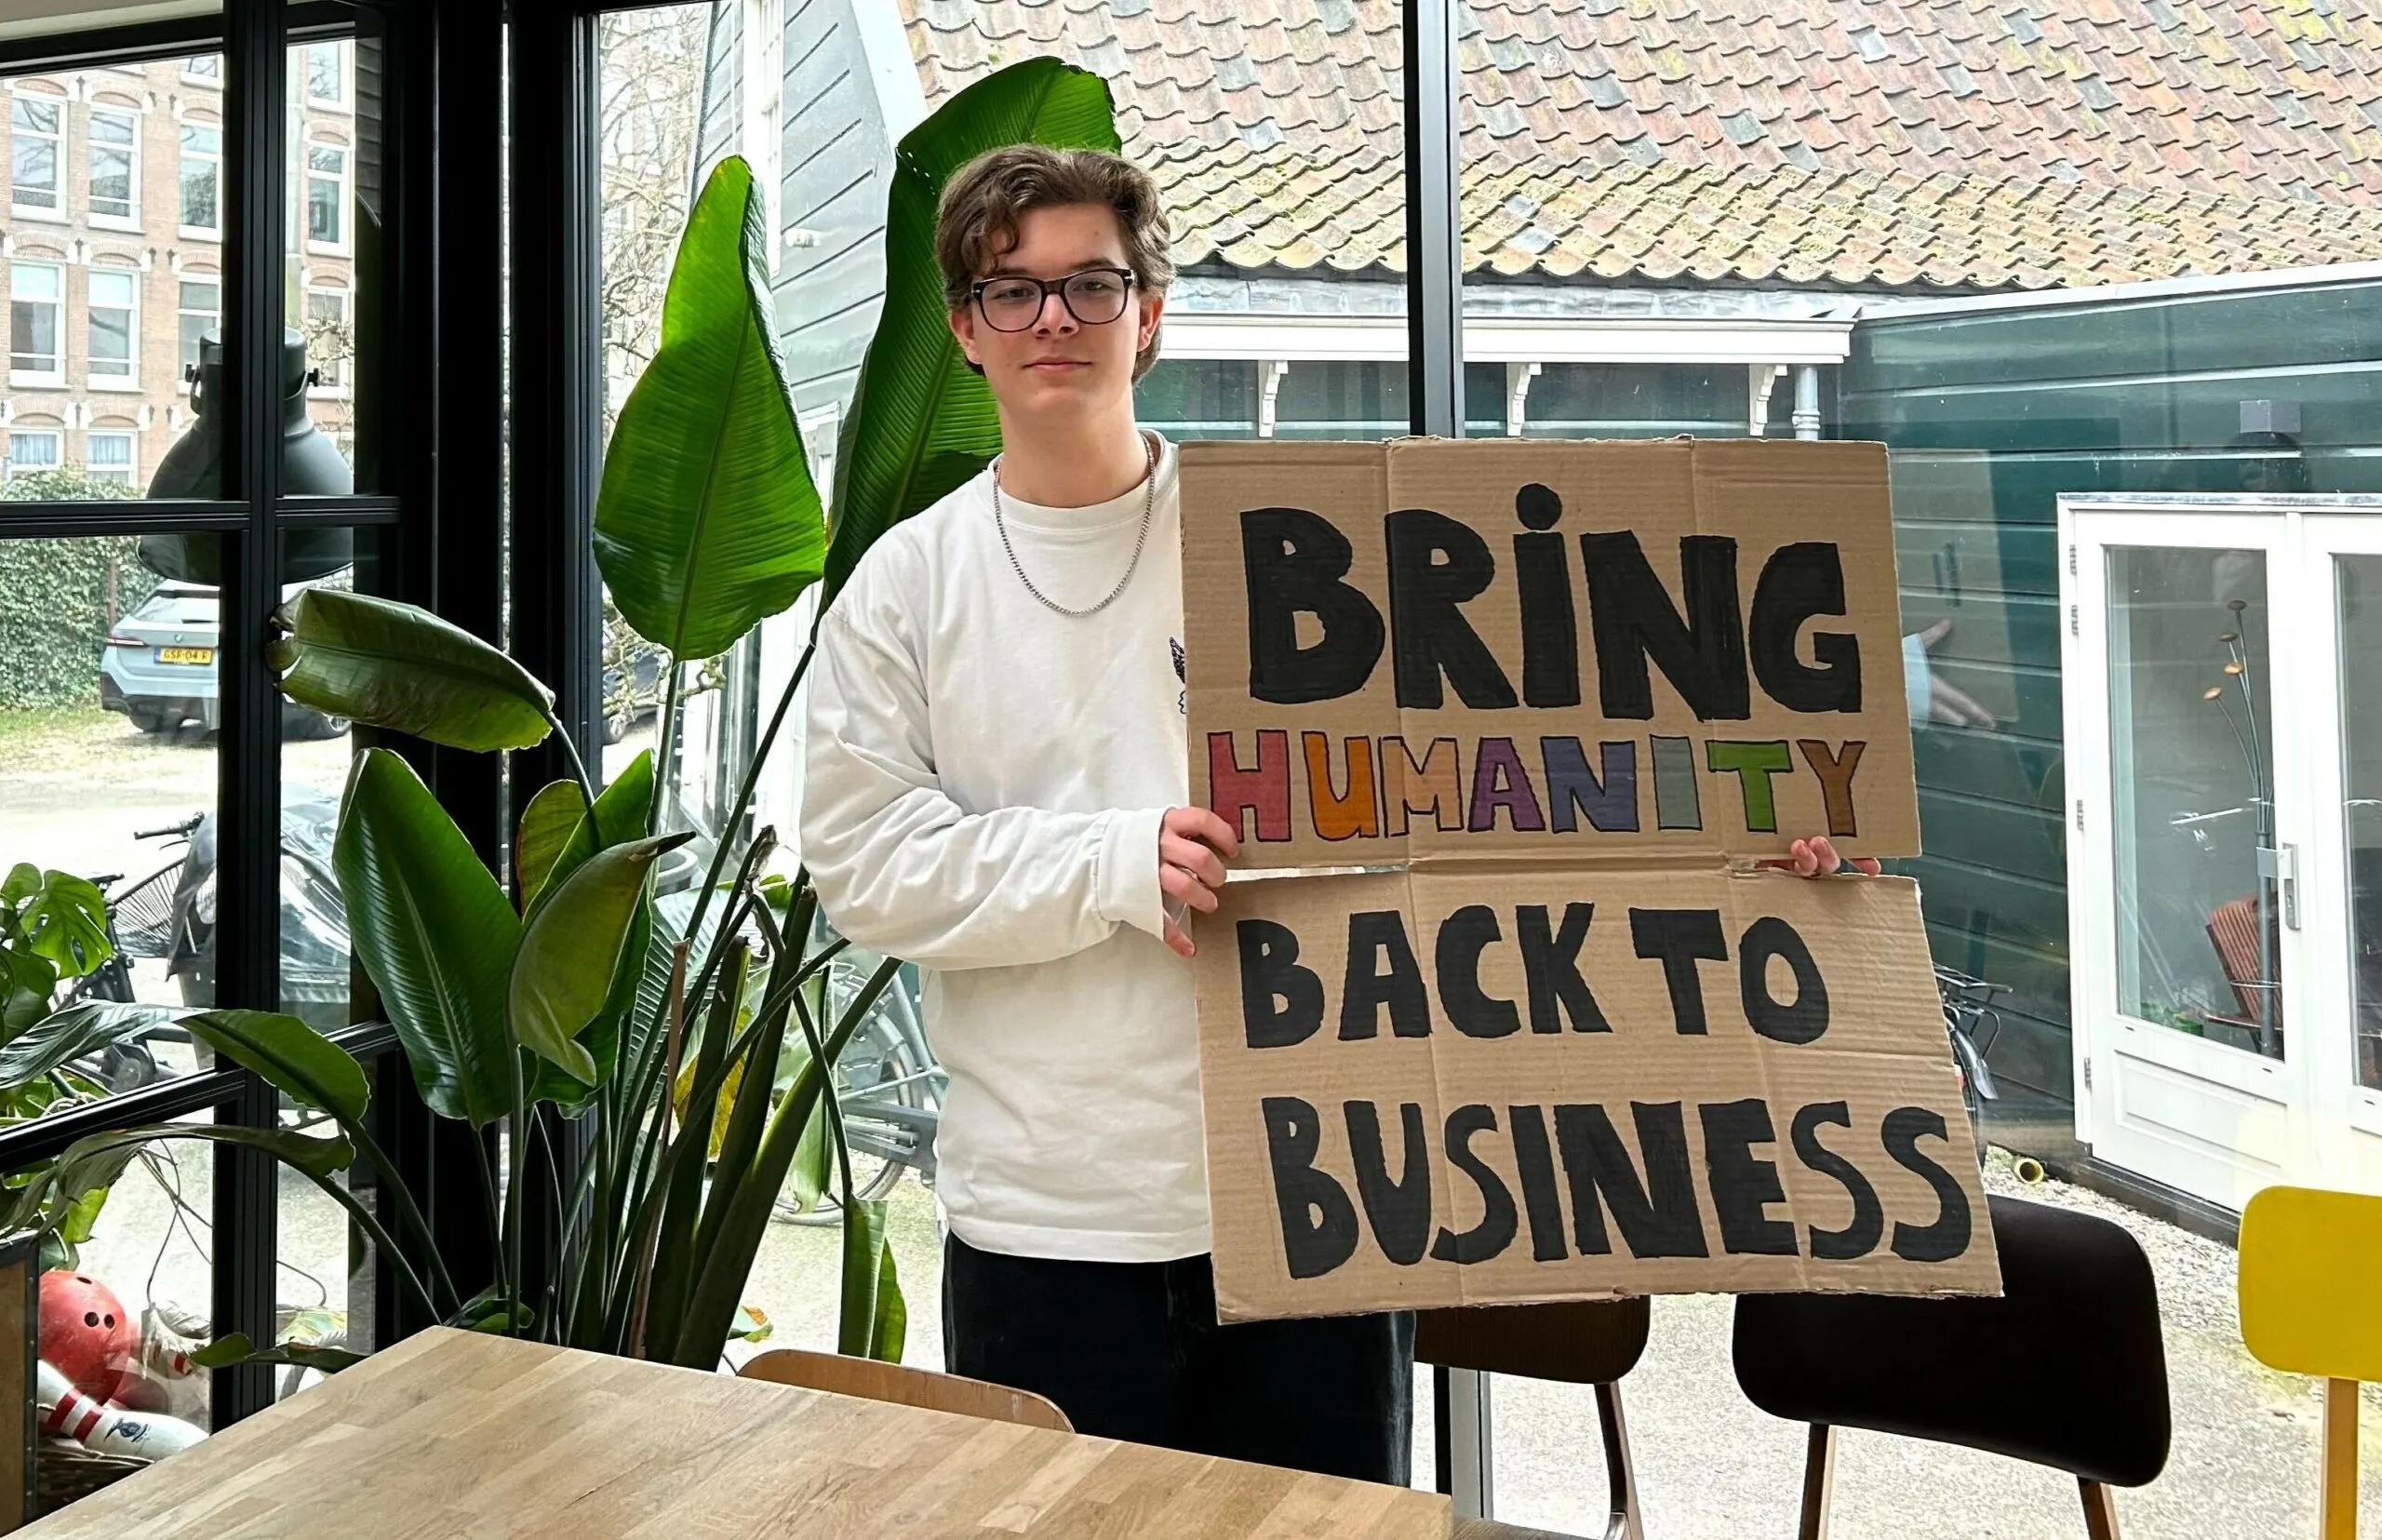 BRiNG
HUMANITY
BACK TO
BUSINESS